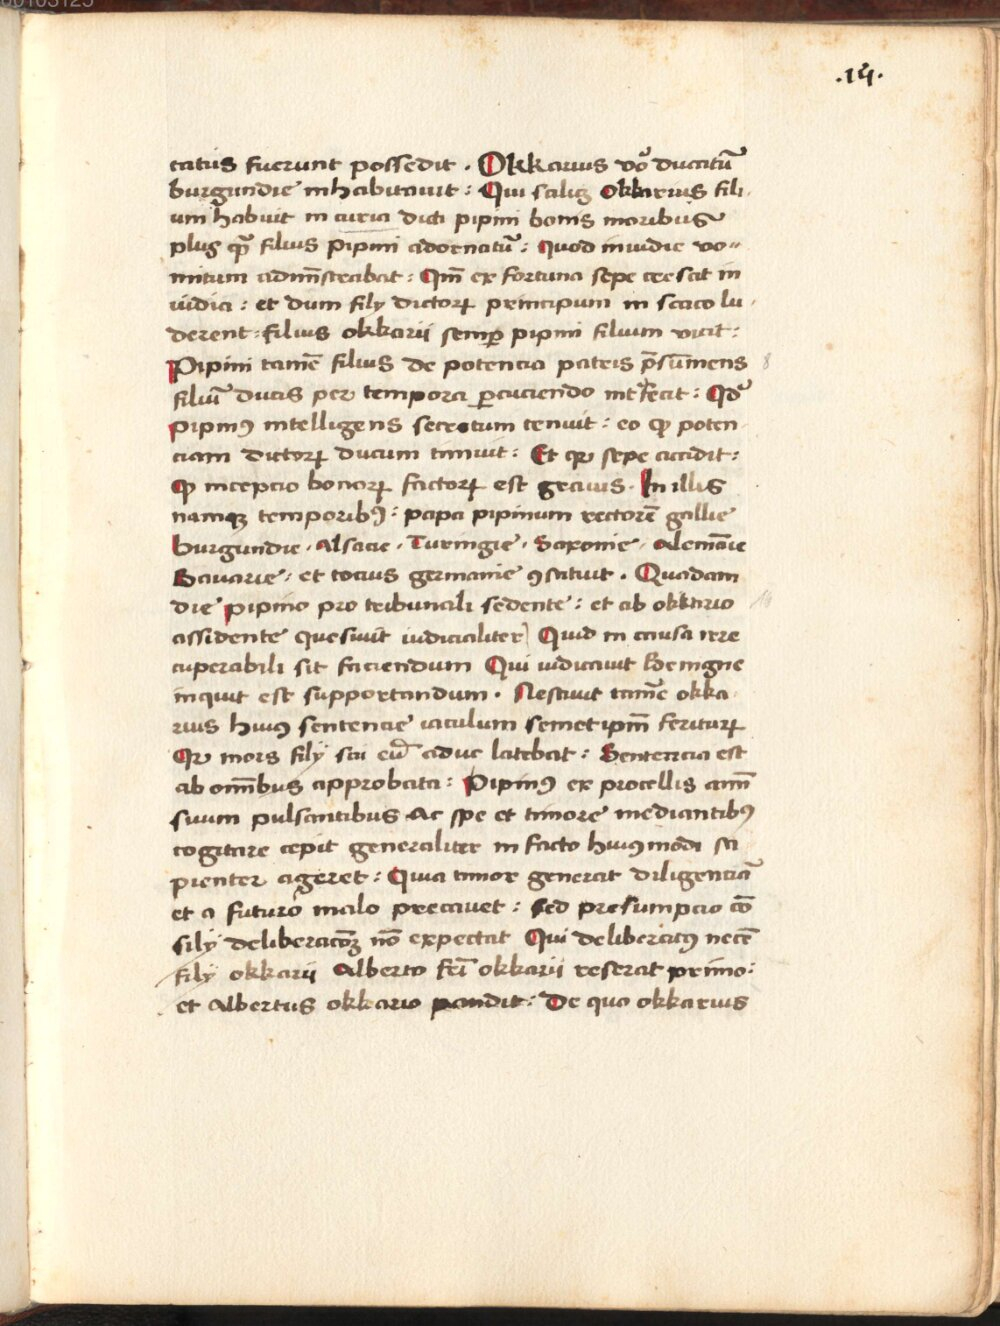 00103125
.14.
catus fuerunt possedit . Okkarius vo᷑ ducatū
burgundie inhabitauit : Qui saliꝫ okkarius fili-
um habuit in curia dicti pipini bonis moribus
plus qͣ filius pipini adornatū : Quod inuidie vo-
mitum admīstrabat : Qm̄ ex fortuna sepe crescit in
uidia : et dum filÿ dictoꝝ principum in scaco lu-
derent : filius okkarii semꝑ pipini filium vicit :
Pipini tamē filius de potencia patris p̄sumens
filiū ducis per tempora ꝑcuciendo interfecit : Qd᷑
pipinꝰ intelligens secretum tenuit : eo ꝙ poten
ciam dictoꝝ ducum timuit : Et qꝛ sepe accidit :
ꝙ incepcio bonoꝝ factoꝝ est grauis . In illis
namqꝫ temporibꝰ : papa pipinum rectorē gallie
burgundie . Alsacie . Turingie . Saxonie . Alemāie
Bauarie : et tocius germanie ꝯstituit . Quadam
die pipino pro tribunali sedente : et ab okkario
assidente quesiuit iudicialiter Quid in causa irre
cuperabili sit faciendum Qui iudicauit Benigne
inquit est supportandum . Nesciuit tamē okka-
rius huiꝰ sentencie iaculum semet ipm̄ feriturꝝ
Qꝛ mors filÿ sui eū aduc latebat : Sentencia est
ab omībus approbata : Pipinꝰ ex procellis anīm
suum pulsantibus Ac spe et timore mediantibꝰ
cogitare cepit generaliter in facto huiꝰmodi sa
pienter ageret : Quia timor generat diligenciā
et a futuro malo precauet : sed presumpcio cō
silÿ deliberacōꝫ nō expectat Qui deliberatꝰ necē
filÿ okkarii Alberto frī okkarii reserat primo :
et Albertus okkario pandit : De quo okkarius